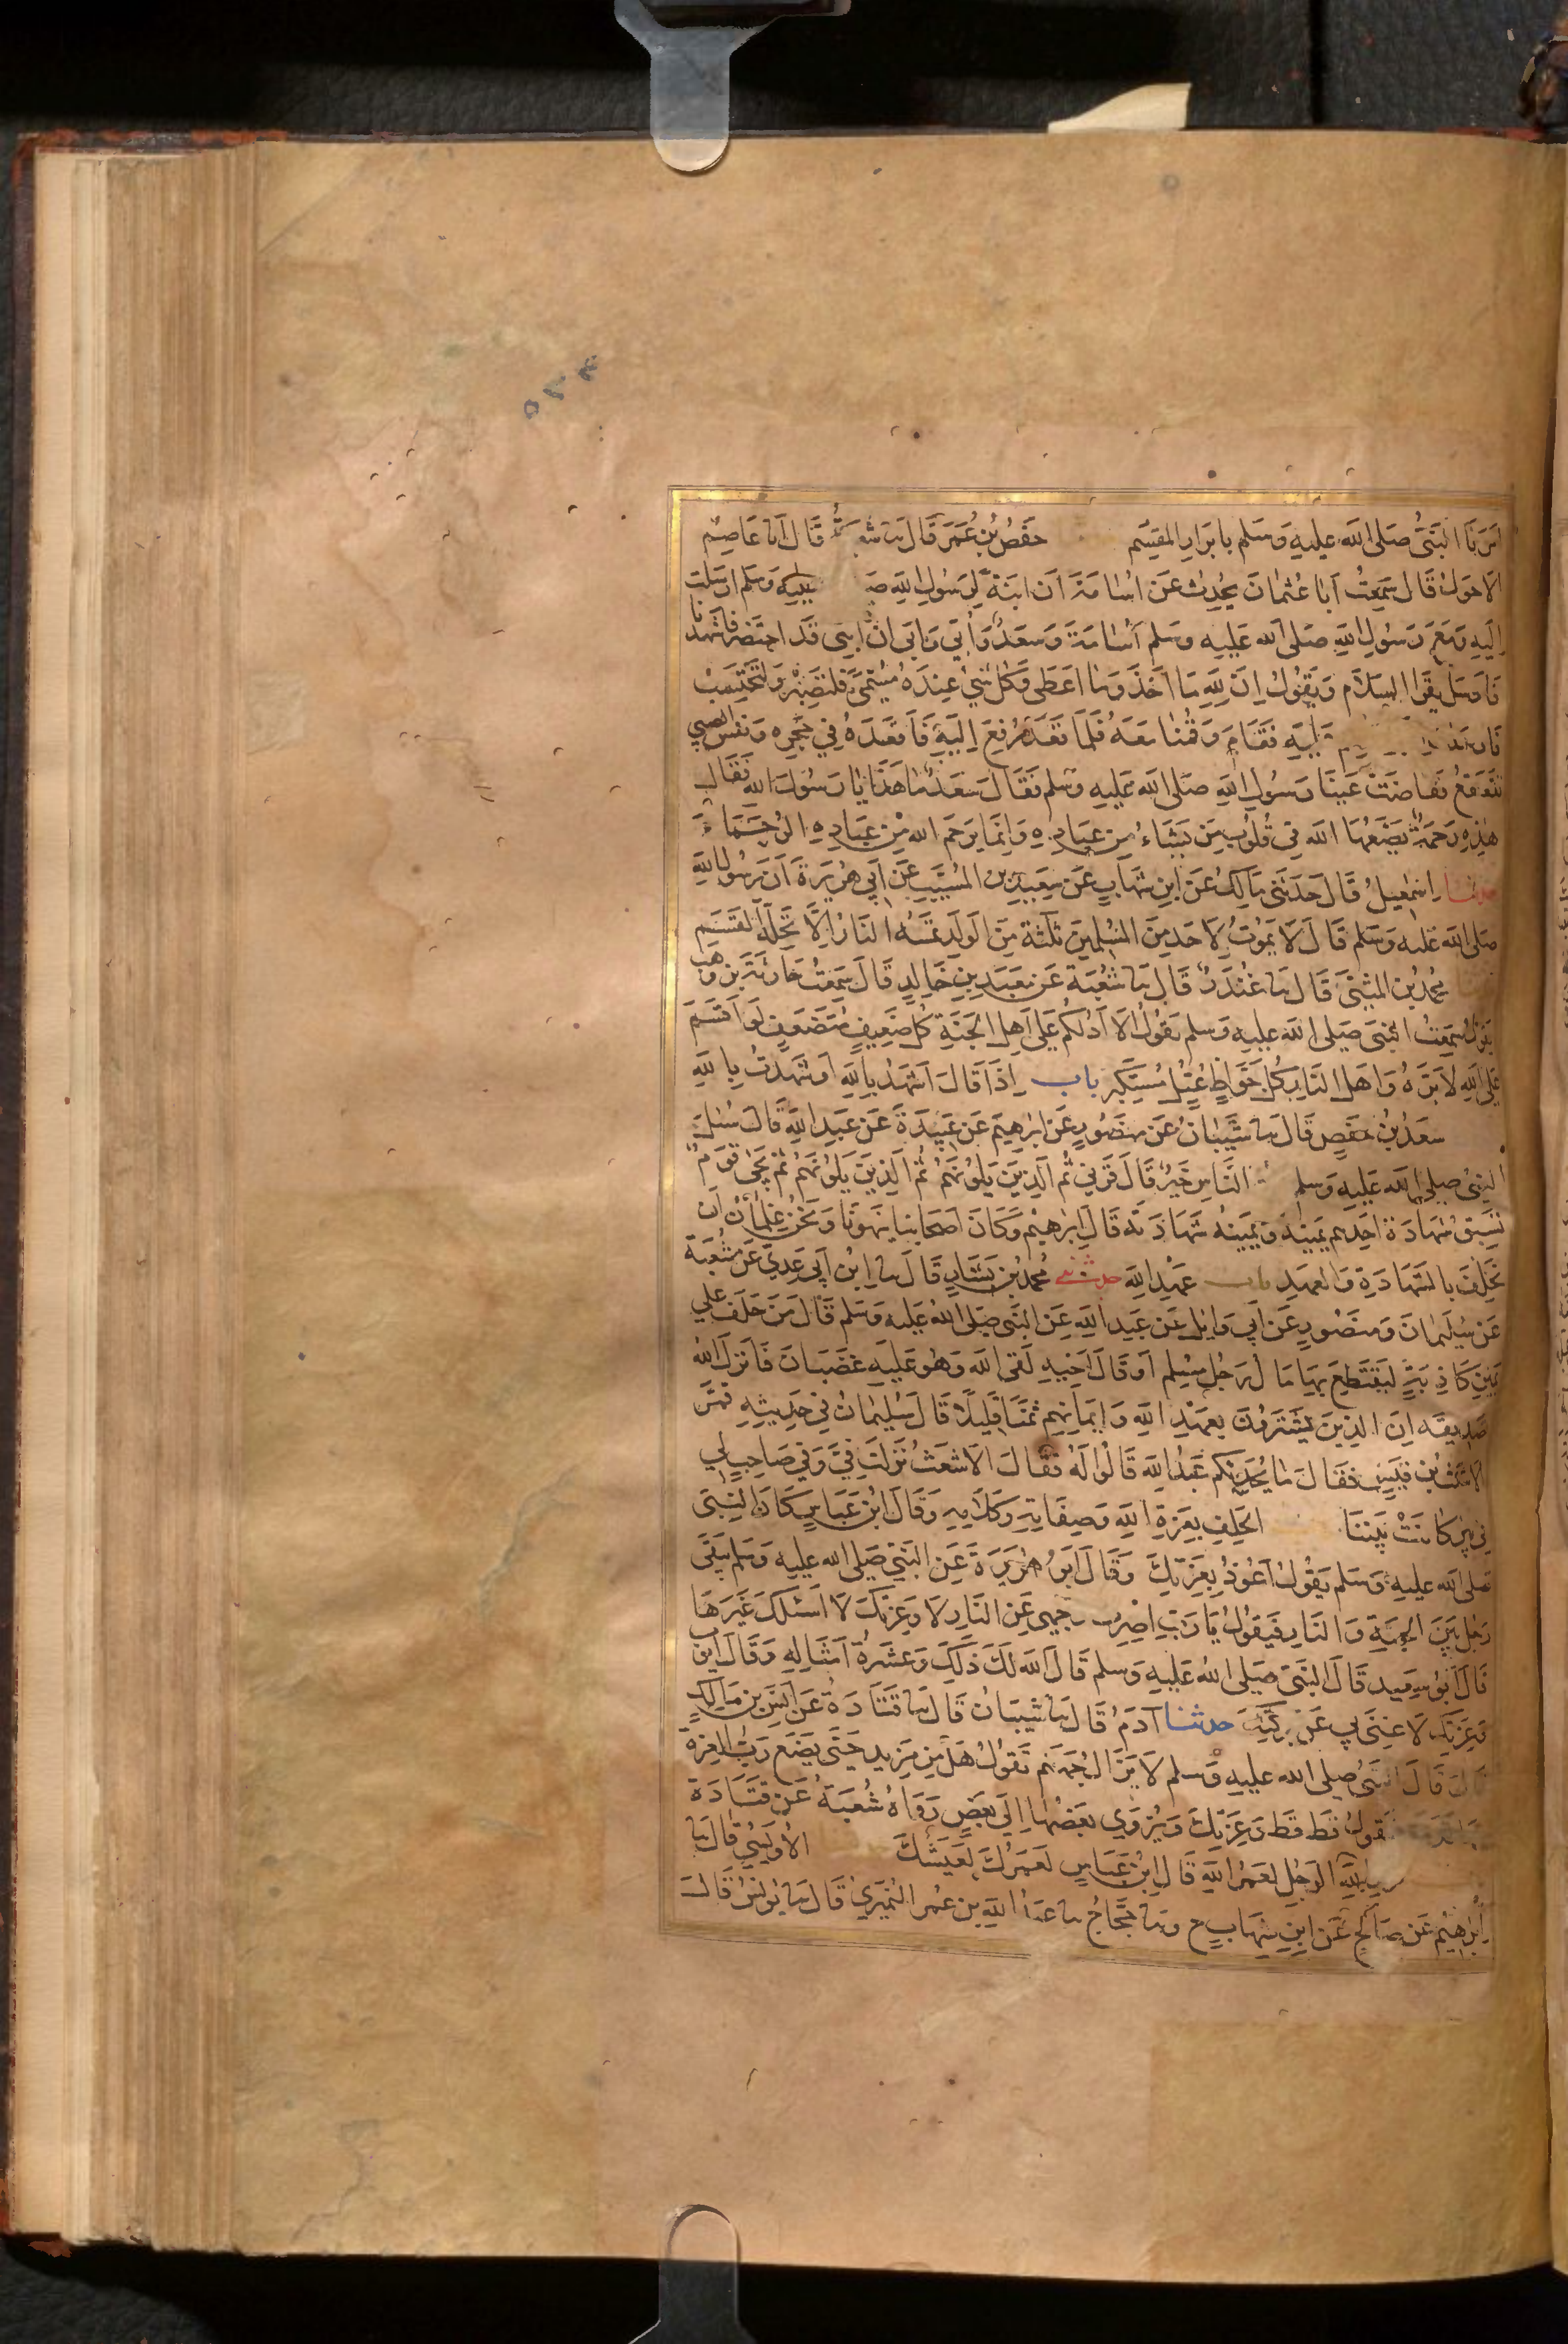 امرنا النبيُّ صلى الله عليه وسلم بابرار المقسم حفصُ بن عُمَر قال نا شعبة قال انا عاصم
الاحول قال سمعتُ ابا عثمان يحدث عن اسامة ان ابنة لرسول الله صـ عليه وسلم ارسلت
اليه ومع رسول الله صلى الله عليه وسلم اسامة وسعد وأبي وابي ان ابني قد احتضر فاشهدنا
فارسل يقرا السلام ويقول ان لله ما اخذ وما اعطى وكل شيء عنده مسمى فلتصبر ولتحتسب
عليه فقام وقمنا معه فلما قعد رفع اليه فاقعده في حجره ونفس الصبي
تتقعقع ففاضت عينا رسول الله صلى الله عليه وسلم فقال سعد ما هذا يا رسول الله فقال
هذه رحمة يضعها الله في قلوب من يشاء من عباده وانما يرحم الله من عباده الرحماء
حدثنا اسمعيل قال حدثني مالك عن ابن شهاب عن سعيد بن المسيب عن ابي هريرة ان رسول الله
صلى الله عليه وسلم قال لا يموت لاحد من المسلمين ثلثة من الولد تمسه النار الا تحلة القسم
محمد بن المثنى قال نا غندر قال نا شعبة عن معبد بن خالد قال سمعت حارثة بن وهب
يقول سمعت النبي صلى الله عليه وسلم يقول الا ادلكم على اهل الجنة كل ضعيف متضعف لو اقسم
على الله لابره واهل النار كل جواظ عتل مستكبر باب اذا قال اشهد بالله او شهدت بالله
سعد بن حفص قال نا شيبان عن منصور عن ابرهيم عن عبيدة عن عبد الله قال سئل
النبي صلى الله عليه وسلم الناس خير قال قرني ثم الذين يلونهم ثم الذين يلونهم ثم يجئ قوم
تسبق شهادة احدهم يمينه ويمينه شهادته قال ابرهيم وكان اصحابنا ينهونا ونحن غلمان ان
نحلف بالشهادة والعهد باب عهد الله حدثني محمد بن بشار قال نا ابن ابي عدي عن شعبة
عن سليمان ومنصور عن ابي وايل عن عبد الله عن النبي صلى الله عليه وسلم قال من حلف على
يمين كاذبة ليقتطع بها مال رجل مسلم او قال اخيه لقي الله وهو عليه غضبان فانزل الله
تصديقه ان الذين يشترون بعهد الله وايمانهم ثمنا قليلا قال سليمان في حديثه فمر
الاشعث بن قيس فقال ما يحدثكم عبد الله قالوا له فقال الاشعث نزلت في وفي صاحب لي
في بير كانت بيننا الحلف بعزة الله وصفاته وكلامه وقال ابن عباس كان النبي
صلى الله عليه وسلم يقول اعوذ بعزتك وقال ابو هريرة عن النبي صلى الله عليه وسلم يبقى
رجل بين الجنة والنار فيقول يا رب اصرف وجهي عن النار لا وعزتك لا اسئلك غيرها
قال ابو سعيد قال النبي صلى الله عليه وسلم قال الله لك ذلك وعشرة امثاله وقال ايوب
وعزتك لا غنى بي عن بركتك حدثنا آدم قال نا شيبان قال نا قتادة عن انس بن مالك
قال قال النبي صلى الله عليه وسلم لا يزال جهنم تقول هل من مزيد حتى يضع رب العزة
فتقول قط قط وعزتك ويزوي بعضها الى بعض رواه شعبة عن قتادة
الرجل لعمر الله قال ابن عباس لعمرك لعيشك الأويسي قال نا
ابراهيم عن صالح عن ابن شهاب ح ونا حجاج نا عبد الله بن عمر النميري قال نا يونس قال